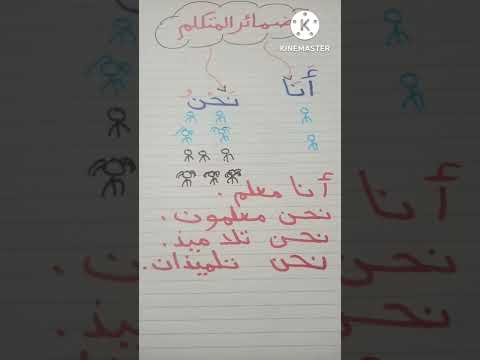 ضمائر المتكلم
K
KINEMASTER
أَنَا نَحْنُ
أنا معلم.
نحن معلمون.
نحن تلاميذ.
نحن تلميذان.